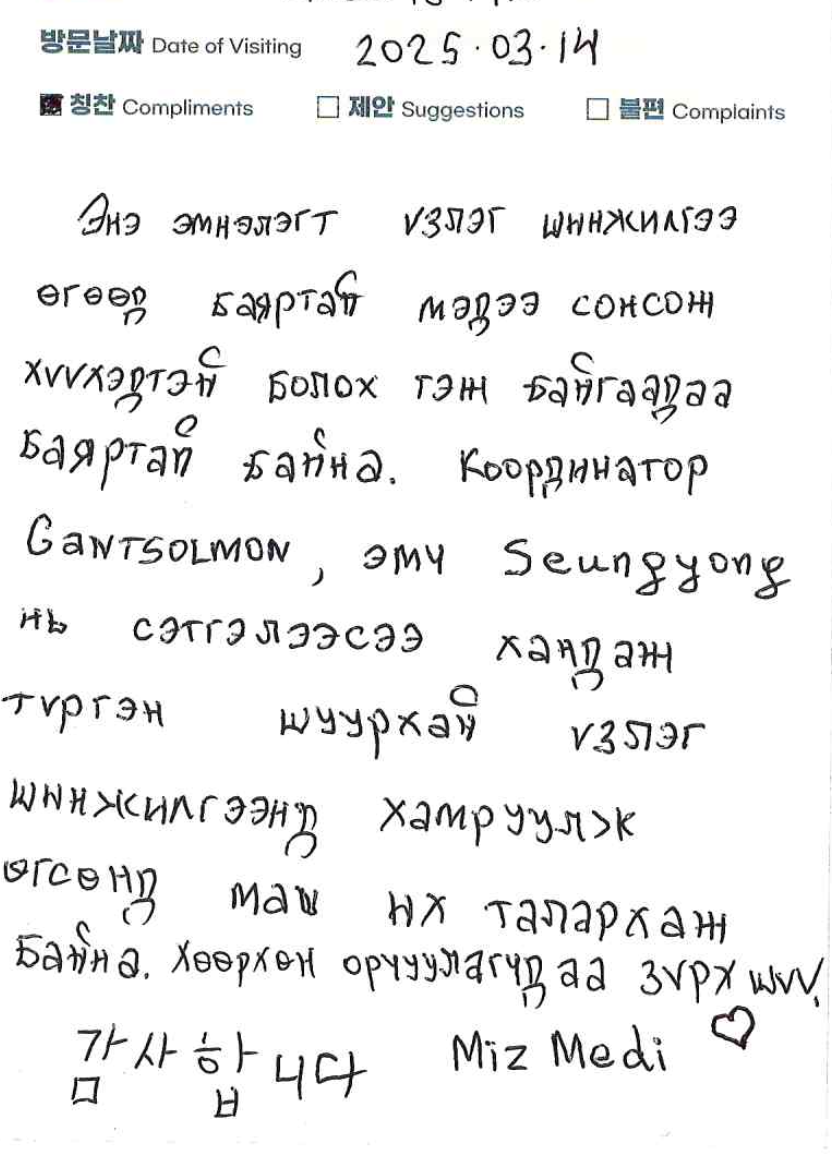 방문날짜 Date of Visiting 2025.03.14
칭찬 Compliments 제안 Suggestions 불편 Complaints
Энэ эмнэлэгт үзлэг шинжилгээ
өгөөд баяртай мэдээ сонсож
хүүхэдтэй болох гэж байгаадаа
баяртай байна. Координатор
GANTSOLMON, эмч Seungyong
нь сэтгэлээсээ хандаж
түргэн шуурхай үзлэг
шинжилгээнд хамруулж
өгсөнд маш их талархаж
байна. Хөөрхөн орчуулагчдаа зүрх шүү.
감사합니다 Miz Medi ♡